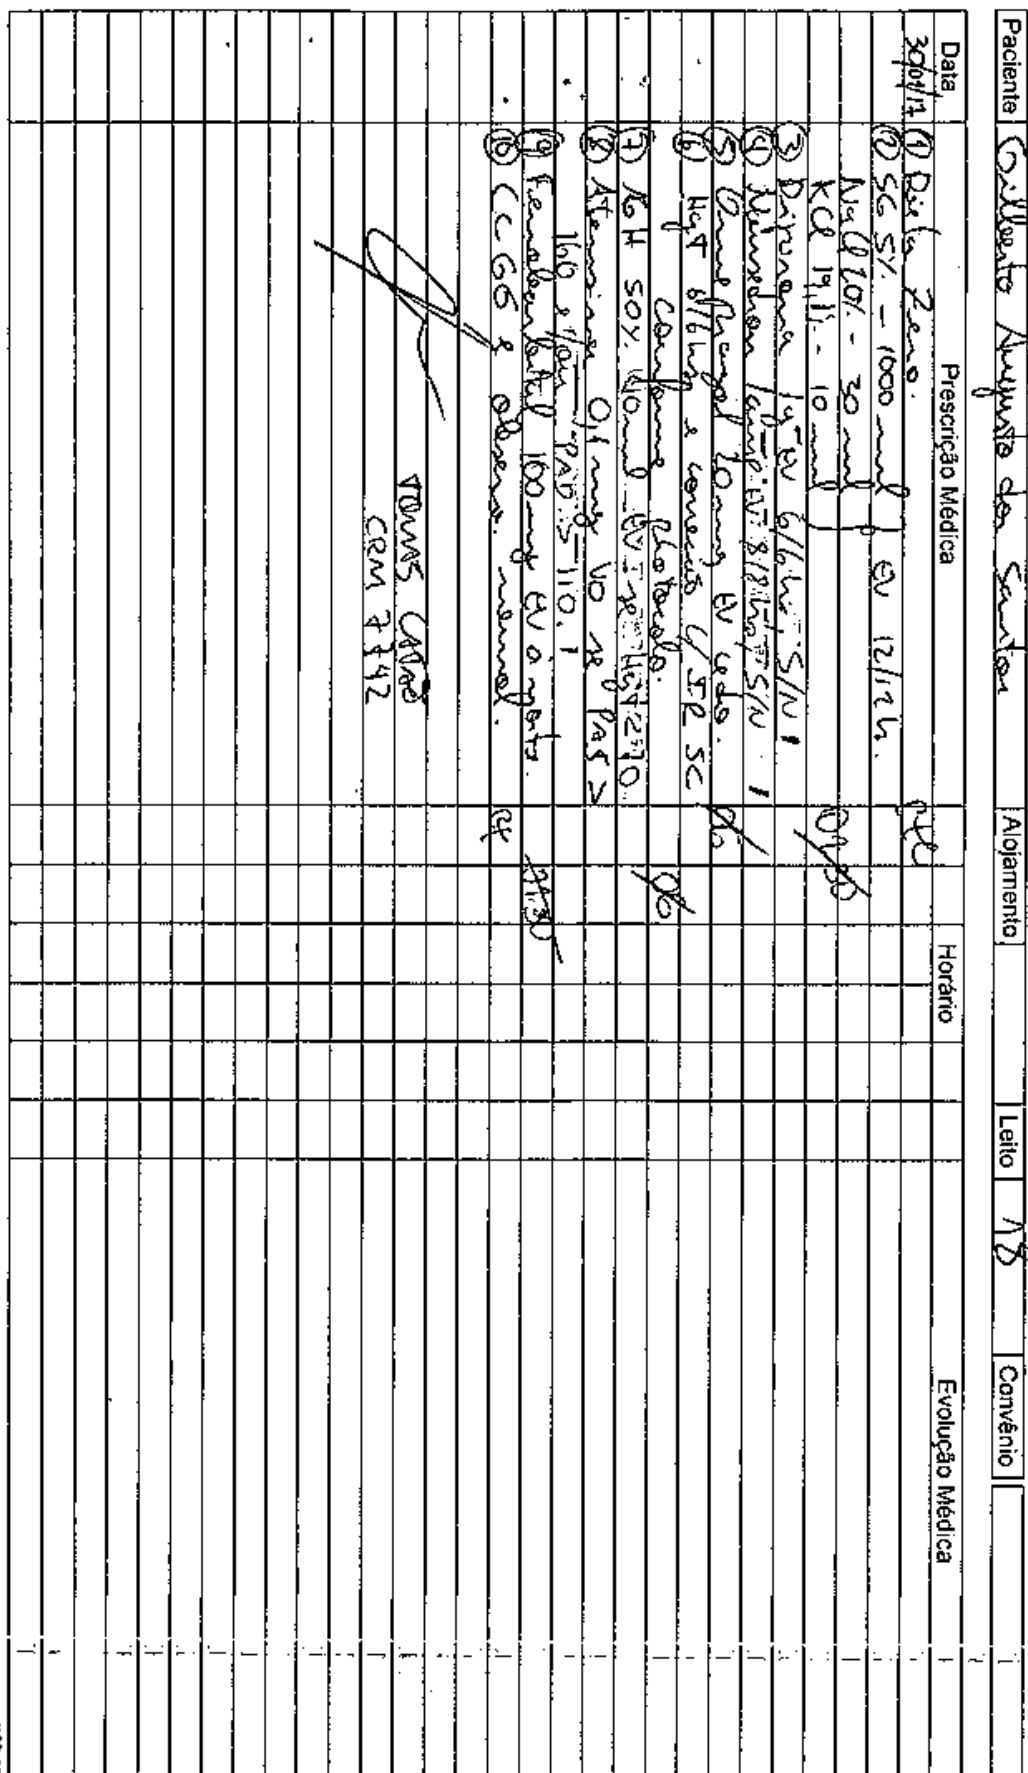 Paciente Gilberto Augusto dos Santos Alojamento Leito 18 Convênio
Data Prescrição Médica Horário Evolução Médica
30/01/17 ① Dieta Zero.
② SG 5% - 1000 ml EV 12/12h.
NaCl 20% - 30 ml
KCl 19,1% - 10 ml 01:30
③ Dipirona 1g EV 6/6hs, S/N
④ 1 amp EV 8/8hs S/N
⑤ Omeprazol 40mg EV cedo. 06
⑥ HgT 6/6hs e correção c/ IR SC
conforme protocolo. 06
⑦ 50% 40ml EV se HgT ≤ 70
⑧ Atensina 0,1 mg VO se PAS >
160 e/ou PAD > 110.
⑨ Fenobarbital 100mg EV a noite. 21:30
⑩ CCGG e observ. neurol.
CRM 7742